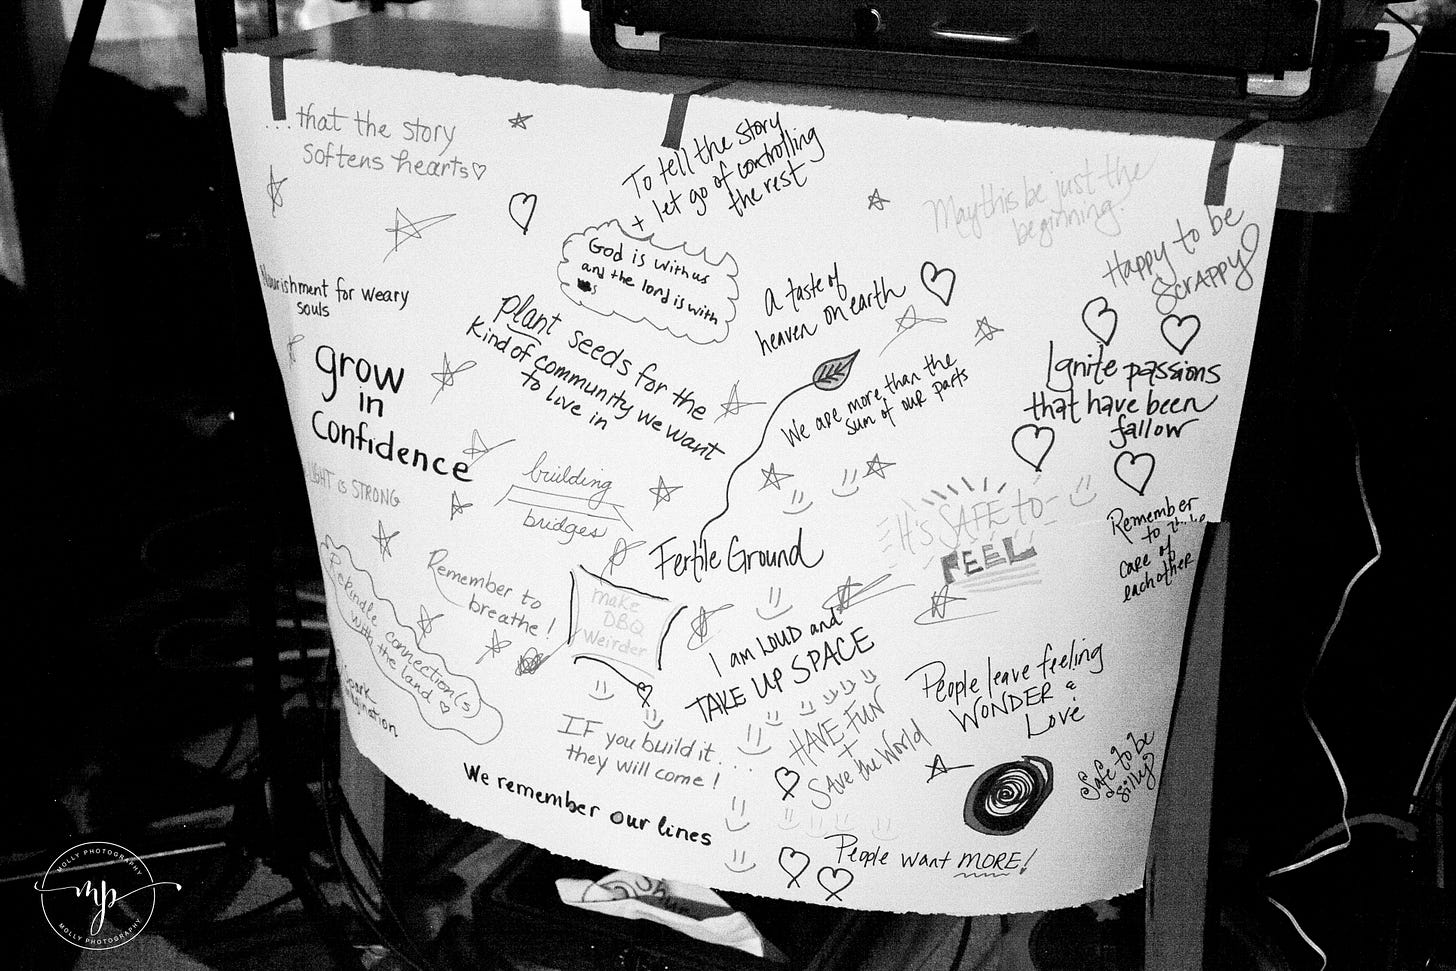 ...that the story
softens hearts♡
To tell the story
+ let go of controlling
the rest
May this be just the
beginning!
Happy to be
Scrappy!
God is with us
and the lord is with
us
Nourishment for weary
souls
A taste of
heaven on earth
Plant seeds for the
kind of community we want
to live in
grow
in
Confidence
We are more than the
sum of our parts
Ignite passions
that have been
fallow
LIGHT is STRONG
building
bridges
It's SAFE to
FEEL
Remember
to
care of
each other
Fertile Ground
Remember to
breathe!
make
DBQ
Weirder
Rekindle connection(s)
with the land ♡
Spark
imagination
I am LOUD and
TAKE UP SPACE
People leave feeling
WONDER &
Love
HAVE FUN
+
SAve the World
IF you build it...
they will come!
Safe to be
silly
We remember our lines
People want MORE!
MOLLY PHOTOGRAPHY
mp
MOLLY PHOTOGRAPHY